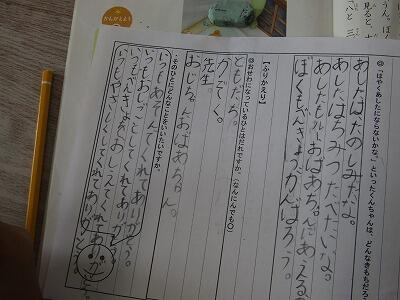 ◎「はやくあしたにならないかな。」といったくんちゃんは、どんなきもちだろ
あしたはたのしみだな。
あしたはちみつたべたいな。
あしたくんもおばあちゃんにあえる
ぼくもべんきょうがんばろう。
【ふりかえり】
◎おせわになっているひとはだれですか。(なんにんでも〇)
ともだち。
かぞく。
先生。
おじちゃんおばあちゃん。
・そのひとにどんなことをいいたいですか。
いつもあそんでくれてありがとう。
いつもおしごとしてくれてありがとう。
いつもべんきょうおしえてくれてありがとう。
いつもやさしくしてくれてありがとう。